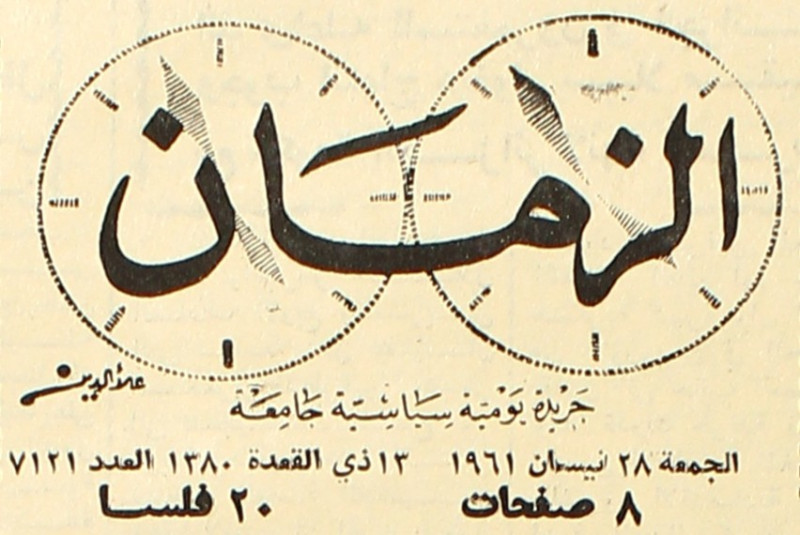 الزمان
علاءالدين
جريدة يومية سياسية جامعة
الجمعة ٢٨ نيسان ١٩٦١ ١٣ ذي القعدة ١٣٨٠ العدد ٧١٢١
٨ صفحات ٢٠ فلسا